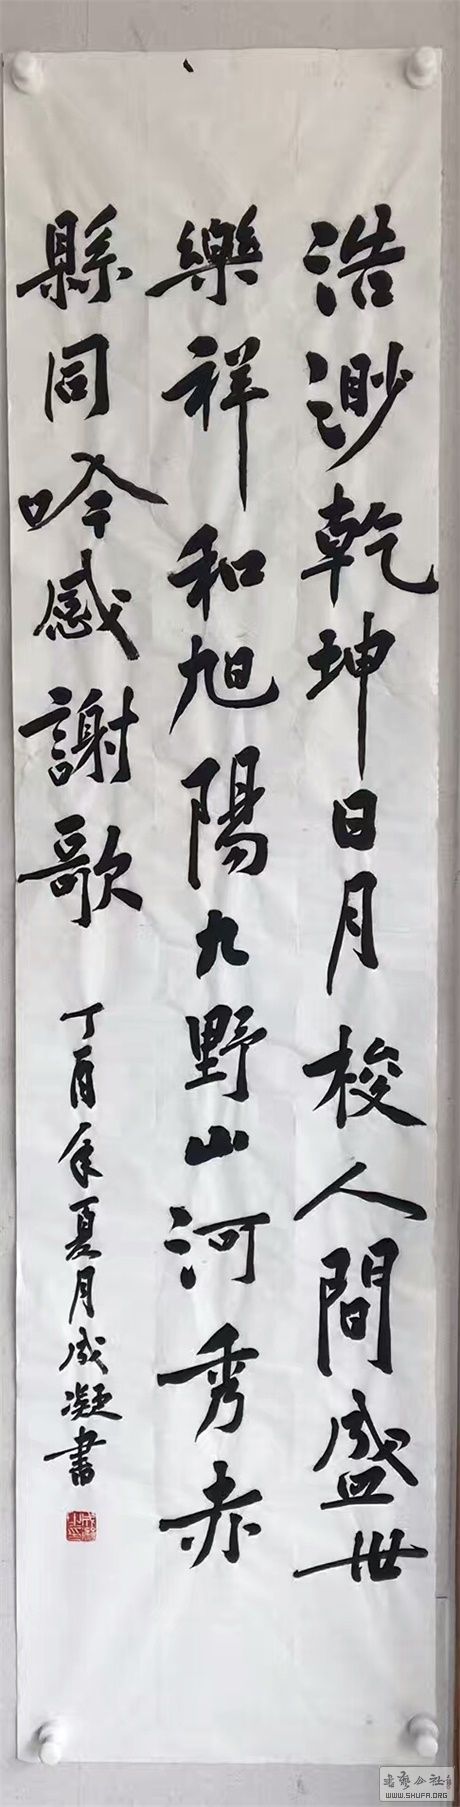 浩渺乾坤日月梭人間盛世
樂祥和旭陽九野山河秀赤
縣同吟感謝歌
丁酉年夏月成凝書
書藝公社
WWW.SHUFA.ORG